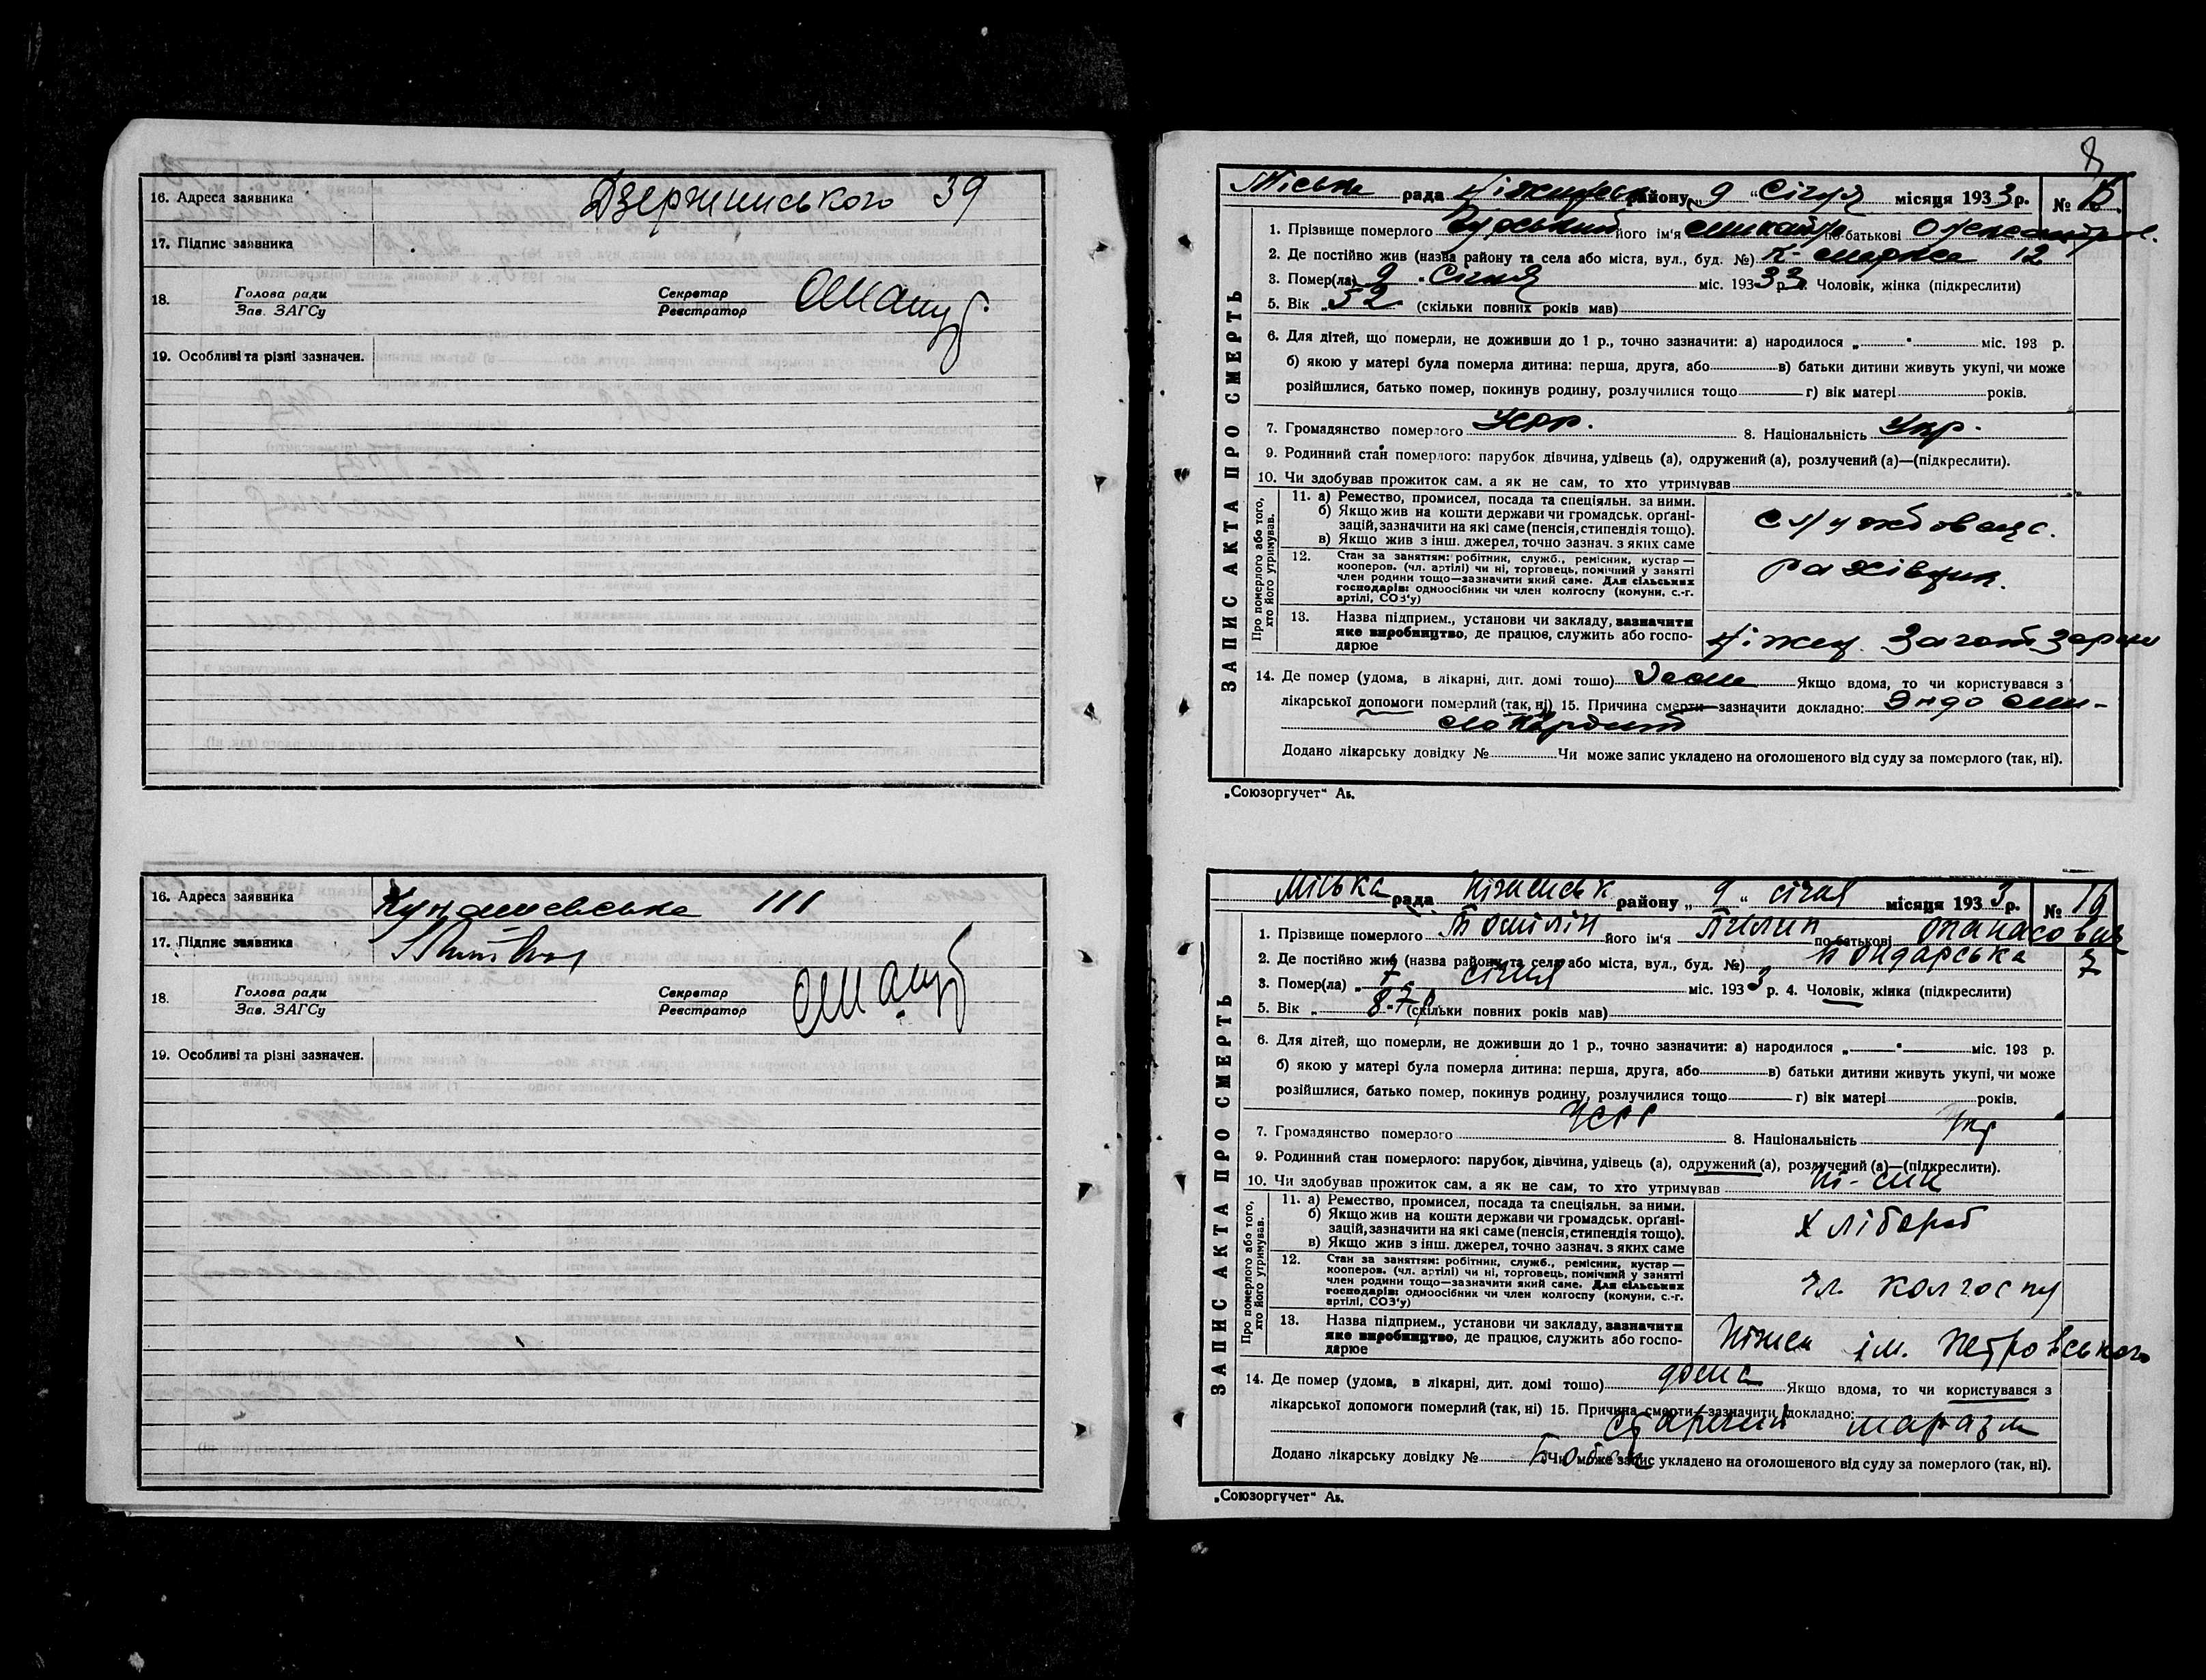 16. Адреса заявника Дзержинського 39
17. Підпис заявника
18. Голова ради Секретар
Зав. ЗАГСу Реєстратор
19. Особливі та різні зазначен.
16. Адреса заявника Кунашевська 111
17. Підпис заявника
18. Голова ради Секретар
Зав. ЗАГСу Реєстратор
19. Особливі та різні зазначен.
8
ЗАПИС АКТА ПРО СМЕРТЬ
Міська рада району „9“ Січня місяця 1933 р. №
1. Прізвище померлого його ім'я по батькові
2. Де постійно жив (назва району та села або міста, вул., буд. №) К-Маркса 12
3. Помер(ла) 9 Січня міс. 1933 р. Чоловік, жінка (підкреслити)
5. Вік „52 (скільки повних років мав)
6. Для дітей, що померли, не доживши до 1 р., точно зазначити: а) народилося „ “ міс. 193 р.
б) якою у матері була померла дитина: перша, друга, або в) батьки дитини живуть укупі, чи може
розійшлися, батько помер, покинув родину, розлучилися тощо г) вік матері років.
7. Громадянство померлого УСРР. 8. Національність Укр.
9. Родинний стан померлого: парубок, дівчина, удівець (а), одружений (а), розлучений (а)—(підкреслити).
10. Чи здобував прожиток сам, а як не сам, то хто утримував
Про померлого або того, хто його утримував.
11. а) Ремество, промисел, посада та спеціяльн. за ними.
б) Якщо жив на кошти держави чи громадськ. орґані-
зацій, зазначити на які саме (пенсія, стипендія тощо).
в) Якщо жив з інш. джерел, точно зазнач. з яких саме
службовець.
12. Стан за заняттям: робітник, служб., ремісник, кустар—
кооперов. (чл. артілі) чи ні, торговець, помічний у занятті
член родини тощо—зазначити який саме. Для сільських
господарів: одноосібник чи член колгоспу (комуни, с.-г.
артілі, СОЗ'у)
рахівник.
13. Назва підприєм., установи чи закладу, зазначити
яке виробництво, де працює, служить або госпо-
дарює
Ніжен. Заготзерно
14. Де помер (удома, в лікарні, дит. домі тощо) дома Якщо вдома, то чи користувався з
лікарської допомоги померлий (так, ні) 15. Причина смерти—зазначити докладно: Эндо ми-
окардит
Додано лікарську довідку № Чи може запис укладено на оголошеного від суду за померлого (так, ні).
„Союзоргучет“ Аб.
ЗАПИС АКТА ПРО СМЕРТЬ
Міська рада Ніженськ району „9“ січня місяця 1933 р. № 16
1. Прізвище померлого його ім'я Пилип по батькові Опанасович
2. Де постійно жив (назва району та села або міста, вул., буд. №) Бондарська 7
3. Помер(ла) „ січня міс. 1933 р. 4. Чоловік, жінка (підкреслити)
5. Вік „ 87 р. (скільки повних років мав)
6. Для дітей, що померли, не доживши до 1 р., точно зазначити: а) народилося „ “ міс. 193 р.
б) якою у матері була померла дитина: перша, друга, або в) батьки дитини живуть укупі, чи може
розійшлися, батько помер, покинув родину, розлучилися тощо г) вік матері років.
7. Громадянство померлого УСРР 8. Національність Укр
9. Родинний стан померлого: парубок, дівчина, удівець (а), одружений (а), розлучений (а)—(підкреслити).
10. Чи здобував прожиток сам, а як не сам, то хто утримував ні-син
Про померлого або того, хто його утримував.
11. а) Ремество, промисел, посада та спеціяльн. за ними.
б) Якщо жив на кошти держави чи громадськ. орґані-
зацій, зазначити на які саме (пенсія, стипендія тощо).
в) Якщо жив з інш. джерел, точно зазнач. з яких саме
хлібороб
12. Стан за заняттям: робітник, служб., ремісник, кустар—
кооперов. (чл. артілі) чи ні, торговець, помічний у занятті
член родини тощо—зазначити який саме. Для сільських
господарів: одноосібник чи член колгоспу (комуни, с.-г.
артілі, СОЗ'у)
чл. колгоспу
13. Назва підприєм., установи чи закладу, зазначити
яке виробництво, де працює, служить або госпо-
дарює
Ніжен ім. Петровського
14. Де помер (удома, в лікарні, дит. домі тощо) дома Якщо вдома, то чи користувався з
лікарської допомоги померлий (так, ні) 15. Причина смерти—зазначити докладно:
Старечий маразм
Додано лікарську довідку № Чи може запис укладено на оголошеного від суду за померлого (так, ні).
„Союзоргучет“ Аб.